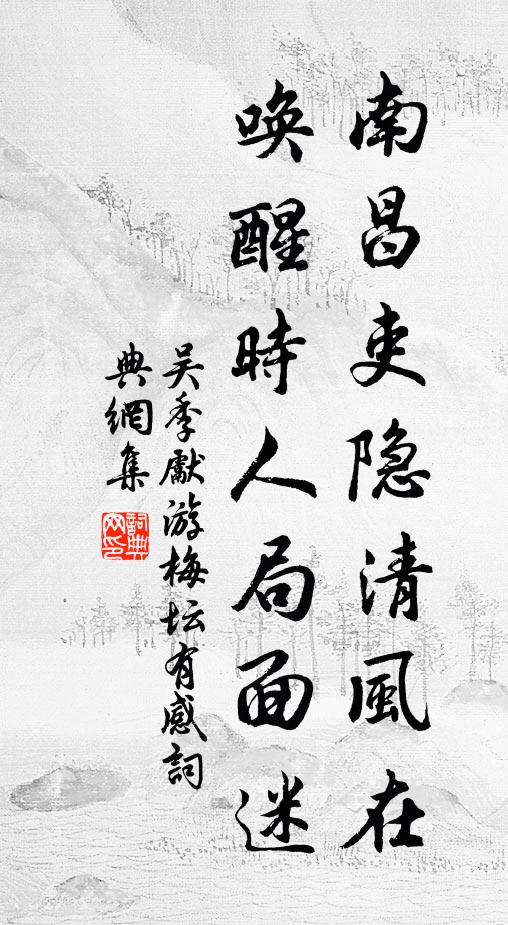 南昌吏隐清風在
唤醒時人局面迷
吴季献游梅坛有感詞
典網集
詞典
网印